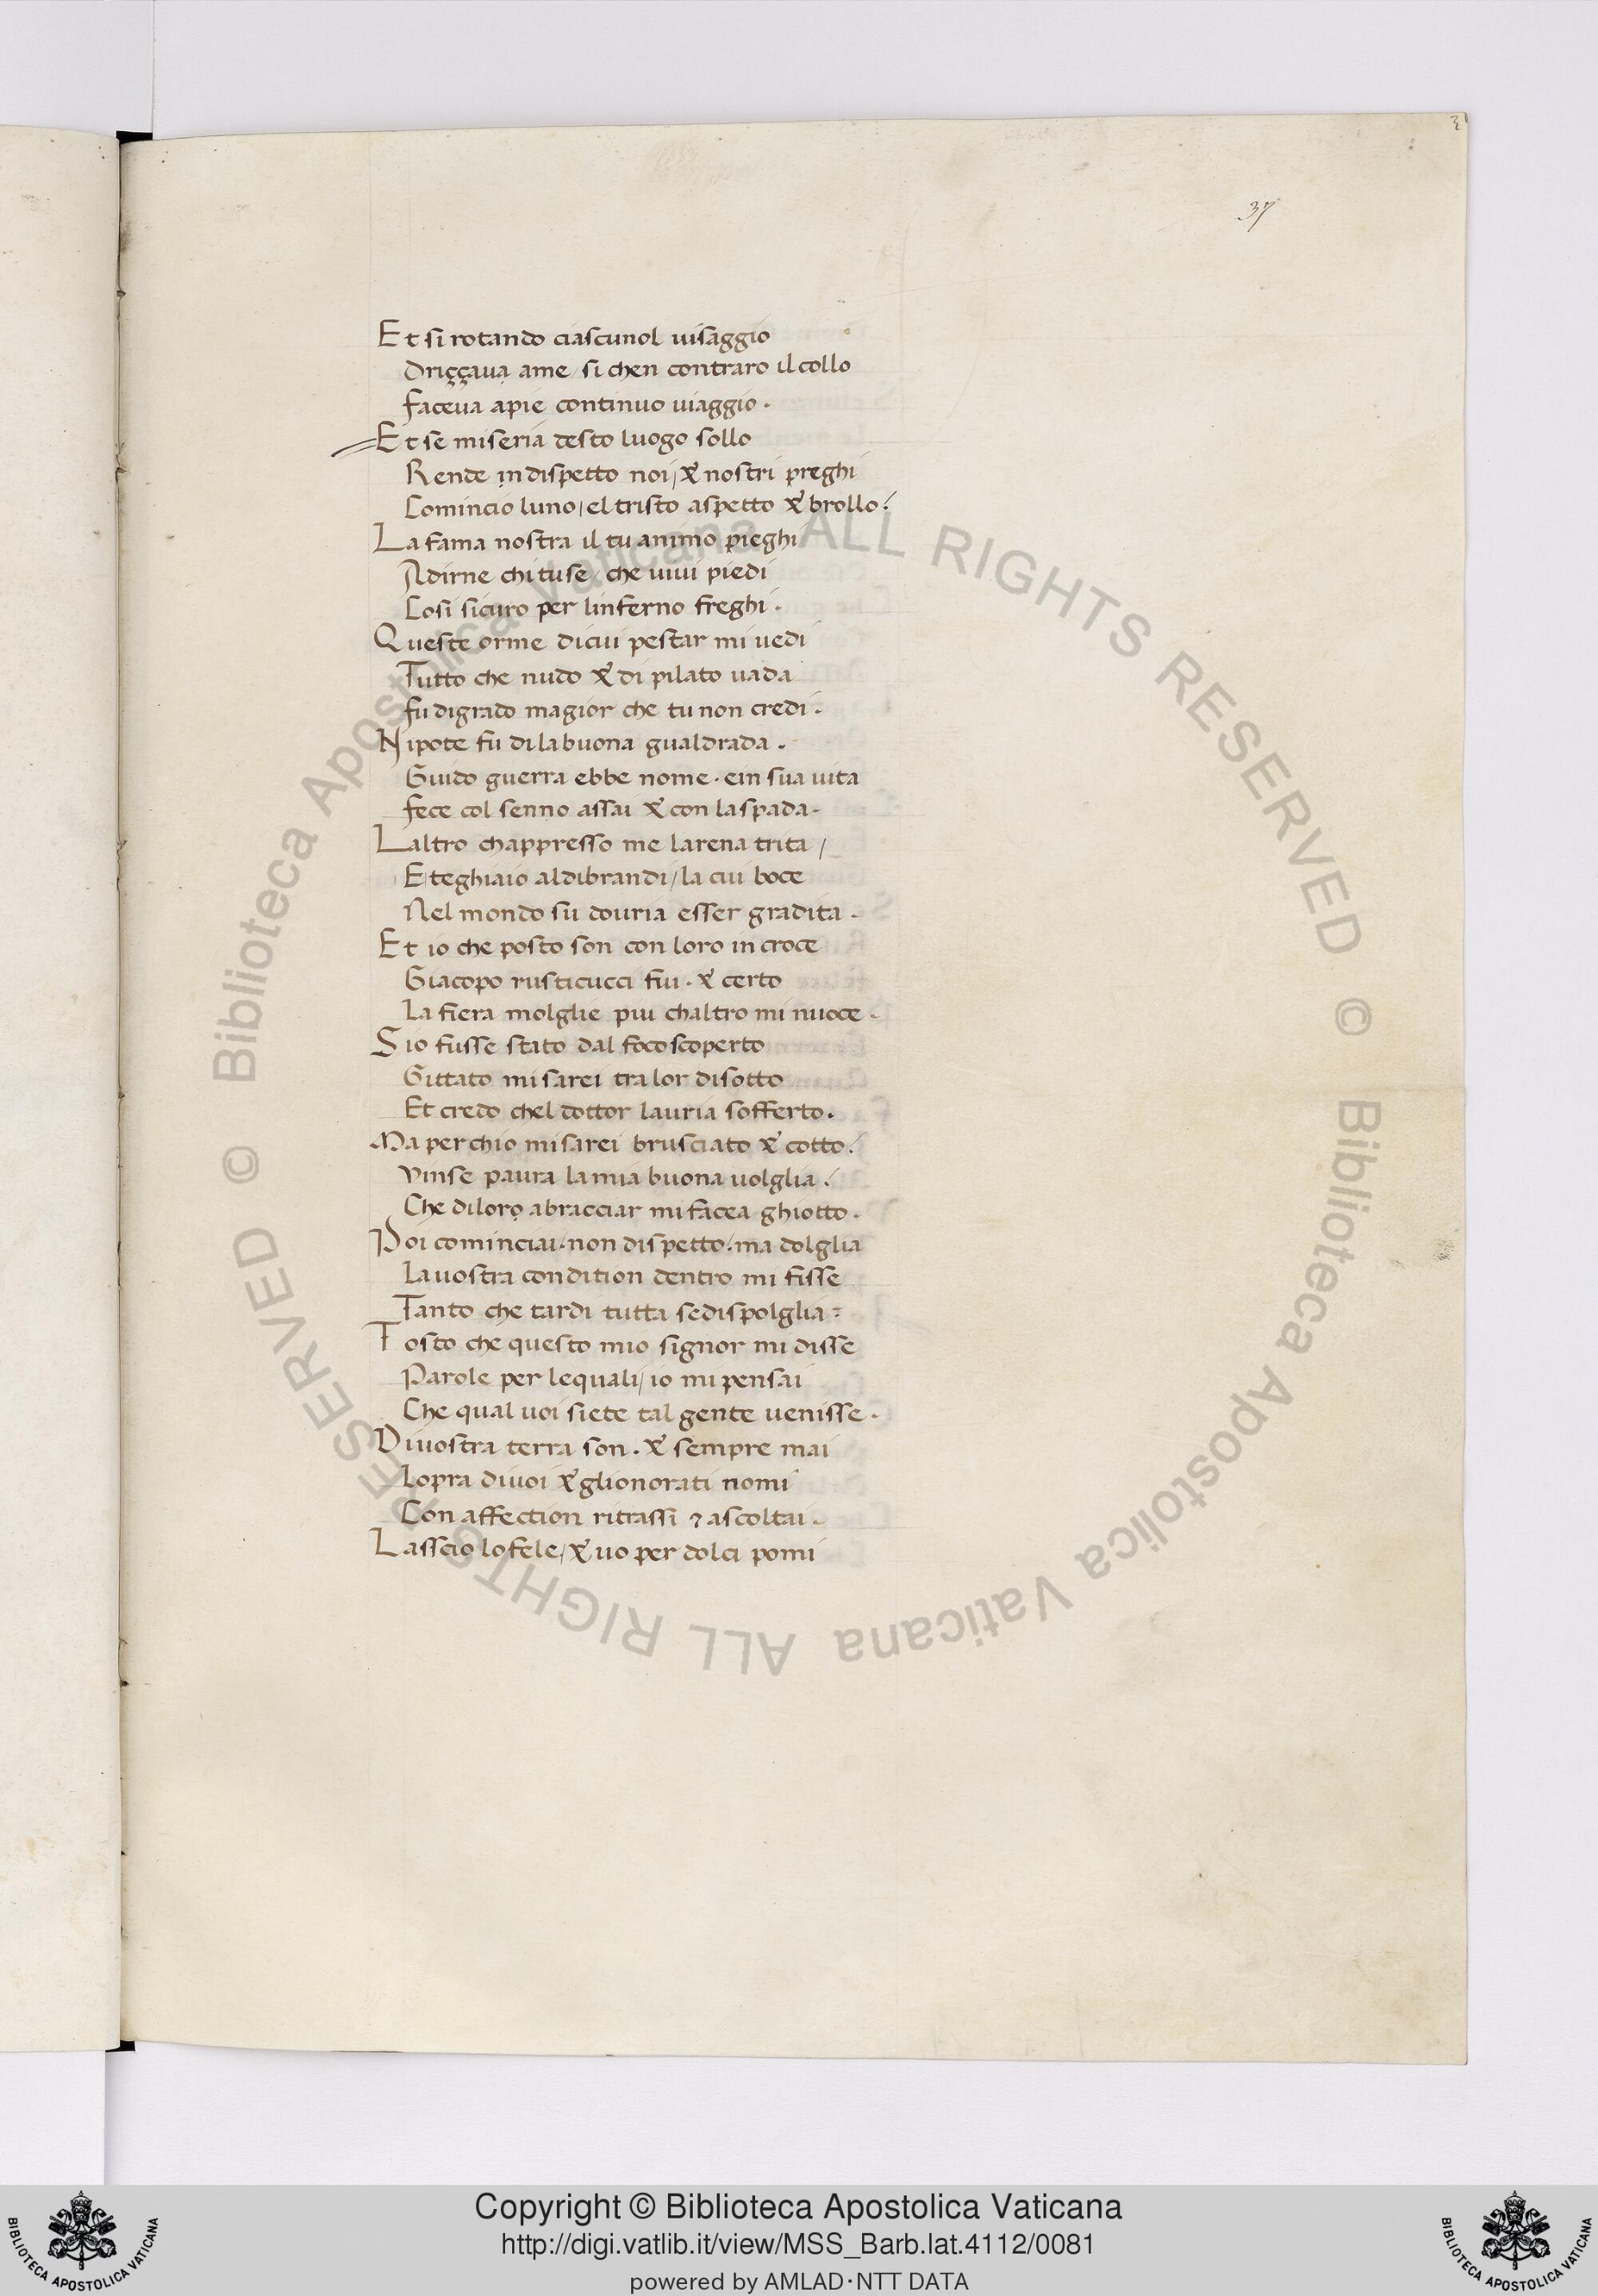 37
Et si rotando ciascunol uisaggio
Driççaua ame / si chen contraro il collo
faceua a pie continuo uiaggio .
Et se miseria desto luogo sollo
Rende in dispetto noi / & nostri preghi
Comincio luno / el tristo aspetto & brollo :
La fama nostra il tu animo pieghi
Adirne chi tu se / che uiui piedi
Cosi sicuro per linferno freghi .
Queste orme di cui pestar mi uedi
Tutto che nudo & di pilato uada
fu di grado magior che tu non credi .
Nipote fu di la buona gualdrada .
Guido guerra ebbe nome . ein sua uita
fece col senno assai & con la spada .
Laltro chappresso me larena trita /
E teghiaio aldibrandi / la cui boce
Nel mondo su douria esser gradita .
Et io che posto son con loro in croce
Giacopo rusticucci fui . & certo
La fiera molglie piu chaltro mi nuoce .
Sio fusse stato dal foco scoperto
Gittato mi sarei tra lor disotto
Et credo chel dottor lauria sofferto .
Ma perchio mi sarei brusciato & cotto :
vinse paura la mia buona uolglia :
Che di loro abracciar mi facea ghiotto .
Poi cominciai . non dispetto : ma dolglia
La uostra condition dentro mi fisse
Tanto che tardi tutta se dispolglia :
Tosto che questo mio signor mi disse
Parole per lequali / io mi pensai
Che qual uoi siete tal gente uenisse .
Di uostra terra son . & sempre mai
Lopra di uoi & gli onorati nomi
Con affection ritrassi ⁊ ascoltai .
Lasscio lo fele / & uo per dolci pomi
© Biblioteca Apostolica Vaticana ALL RIGHTS RESERVED
© Biblioteca Apostolica Vaticana ALL RIGHTS RESERVED
Copyright © Biblioteca Apostolica Vaticana
http://digi.vatlib.it/view/MSS_Barb.lat.4112/0081
powered by AMLAD·NTT DATA
BIBLIOTECA APOSTOLICA VATICANA
BIBLIOTECA APOSTOLICA VATICANA